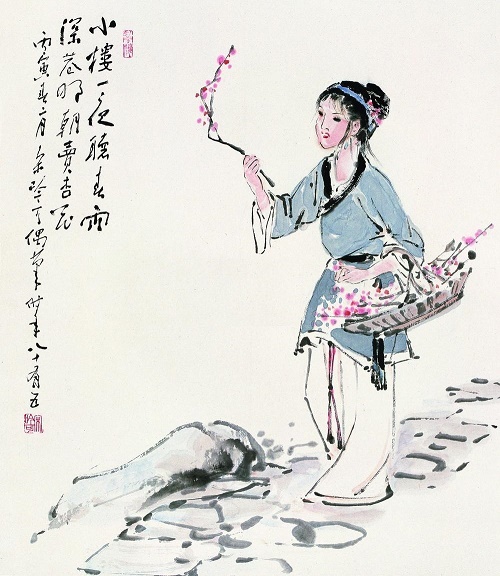 小樓一夜聽春雨
深巷明朝賣杏花
丙寅春二月 偶 時年八十有五